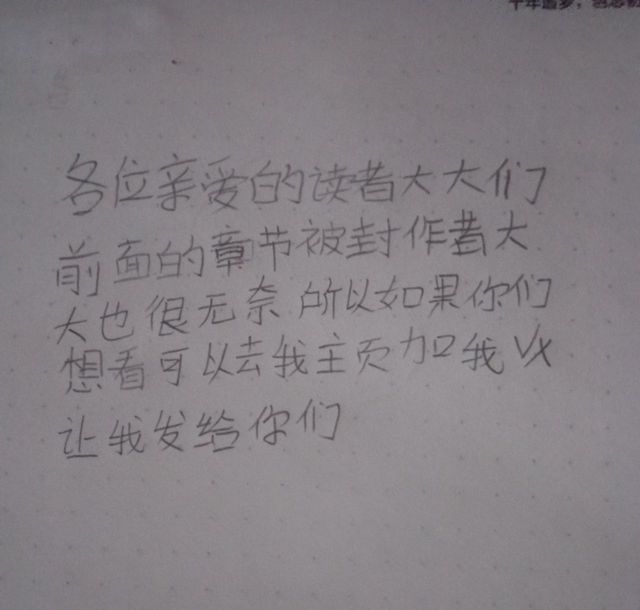 十年追梦，
各位亲爱的读者大大们
前面的章节被封作者大
大也很无奈 所以如果你们
想看可以去我主页加我VX
让我发给你们